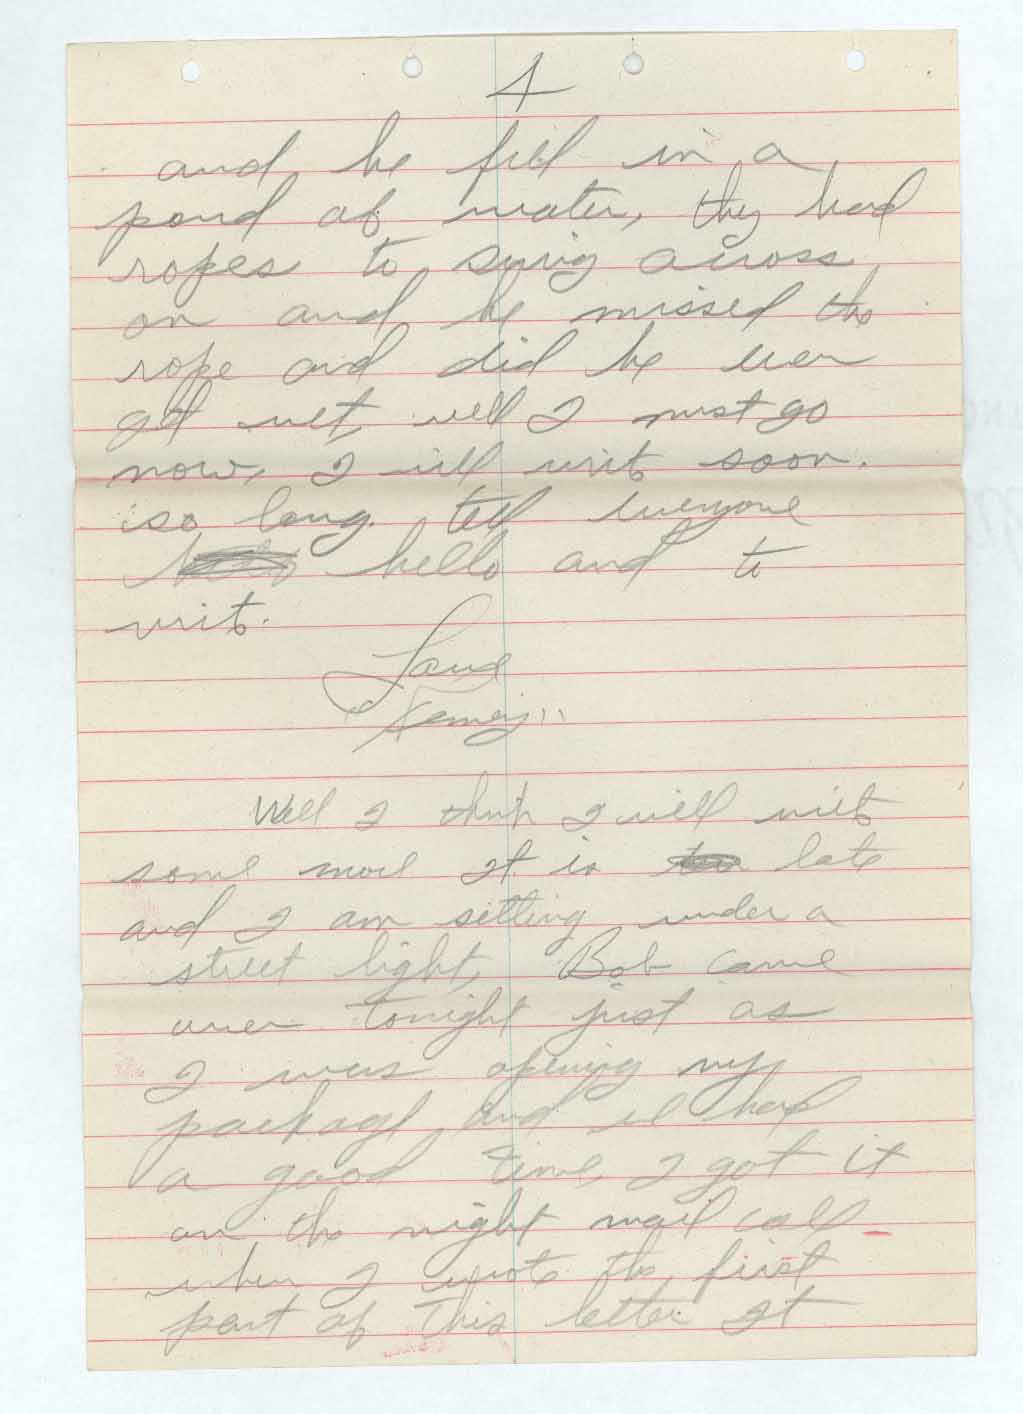 4
and he fell in a
pond of water, they had
ropes to swing across
on and he missed the
rope and did he ever
get wet, well I must go
now, I will write soon.
so long. tell everyone
hello and to
write.
Love
Well I think I will write
some more It is late
and I am setting under a
street light, Bob came
over tonight just as
I was opening my
package, and we had
a good time, I got it
on the night mail call
when I wrote the first
part of this letter It